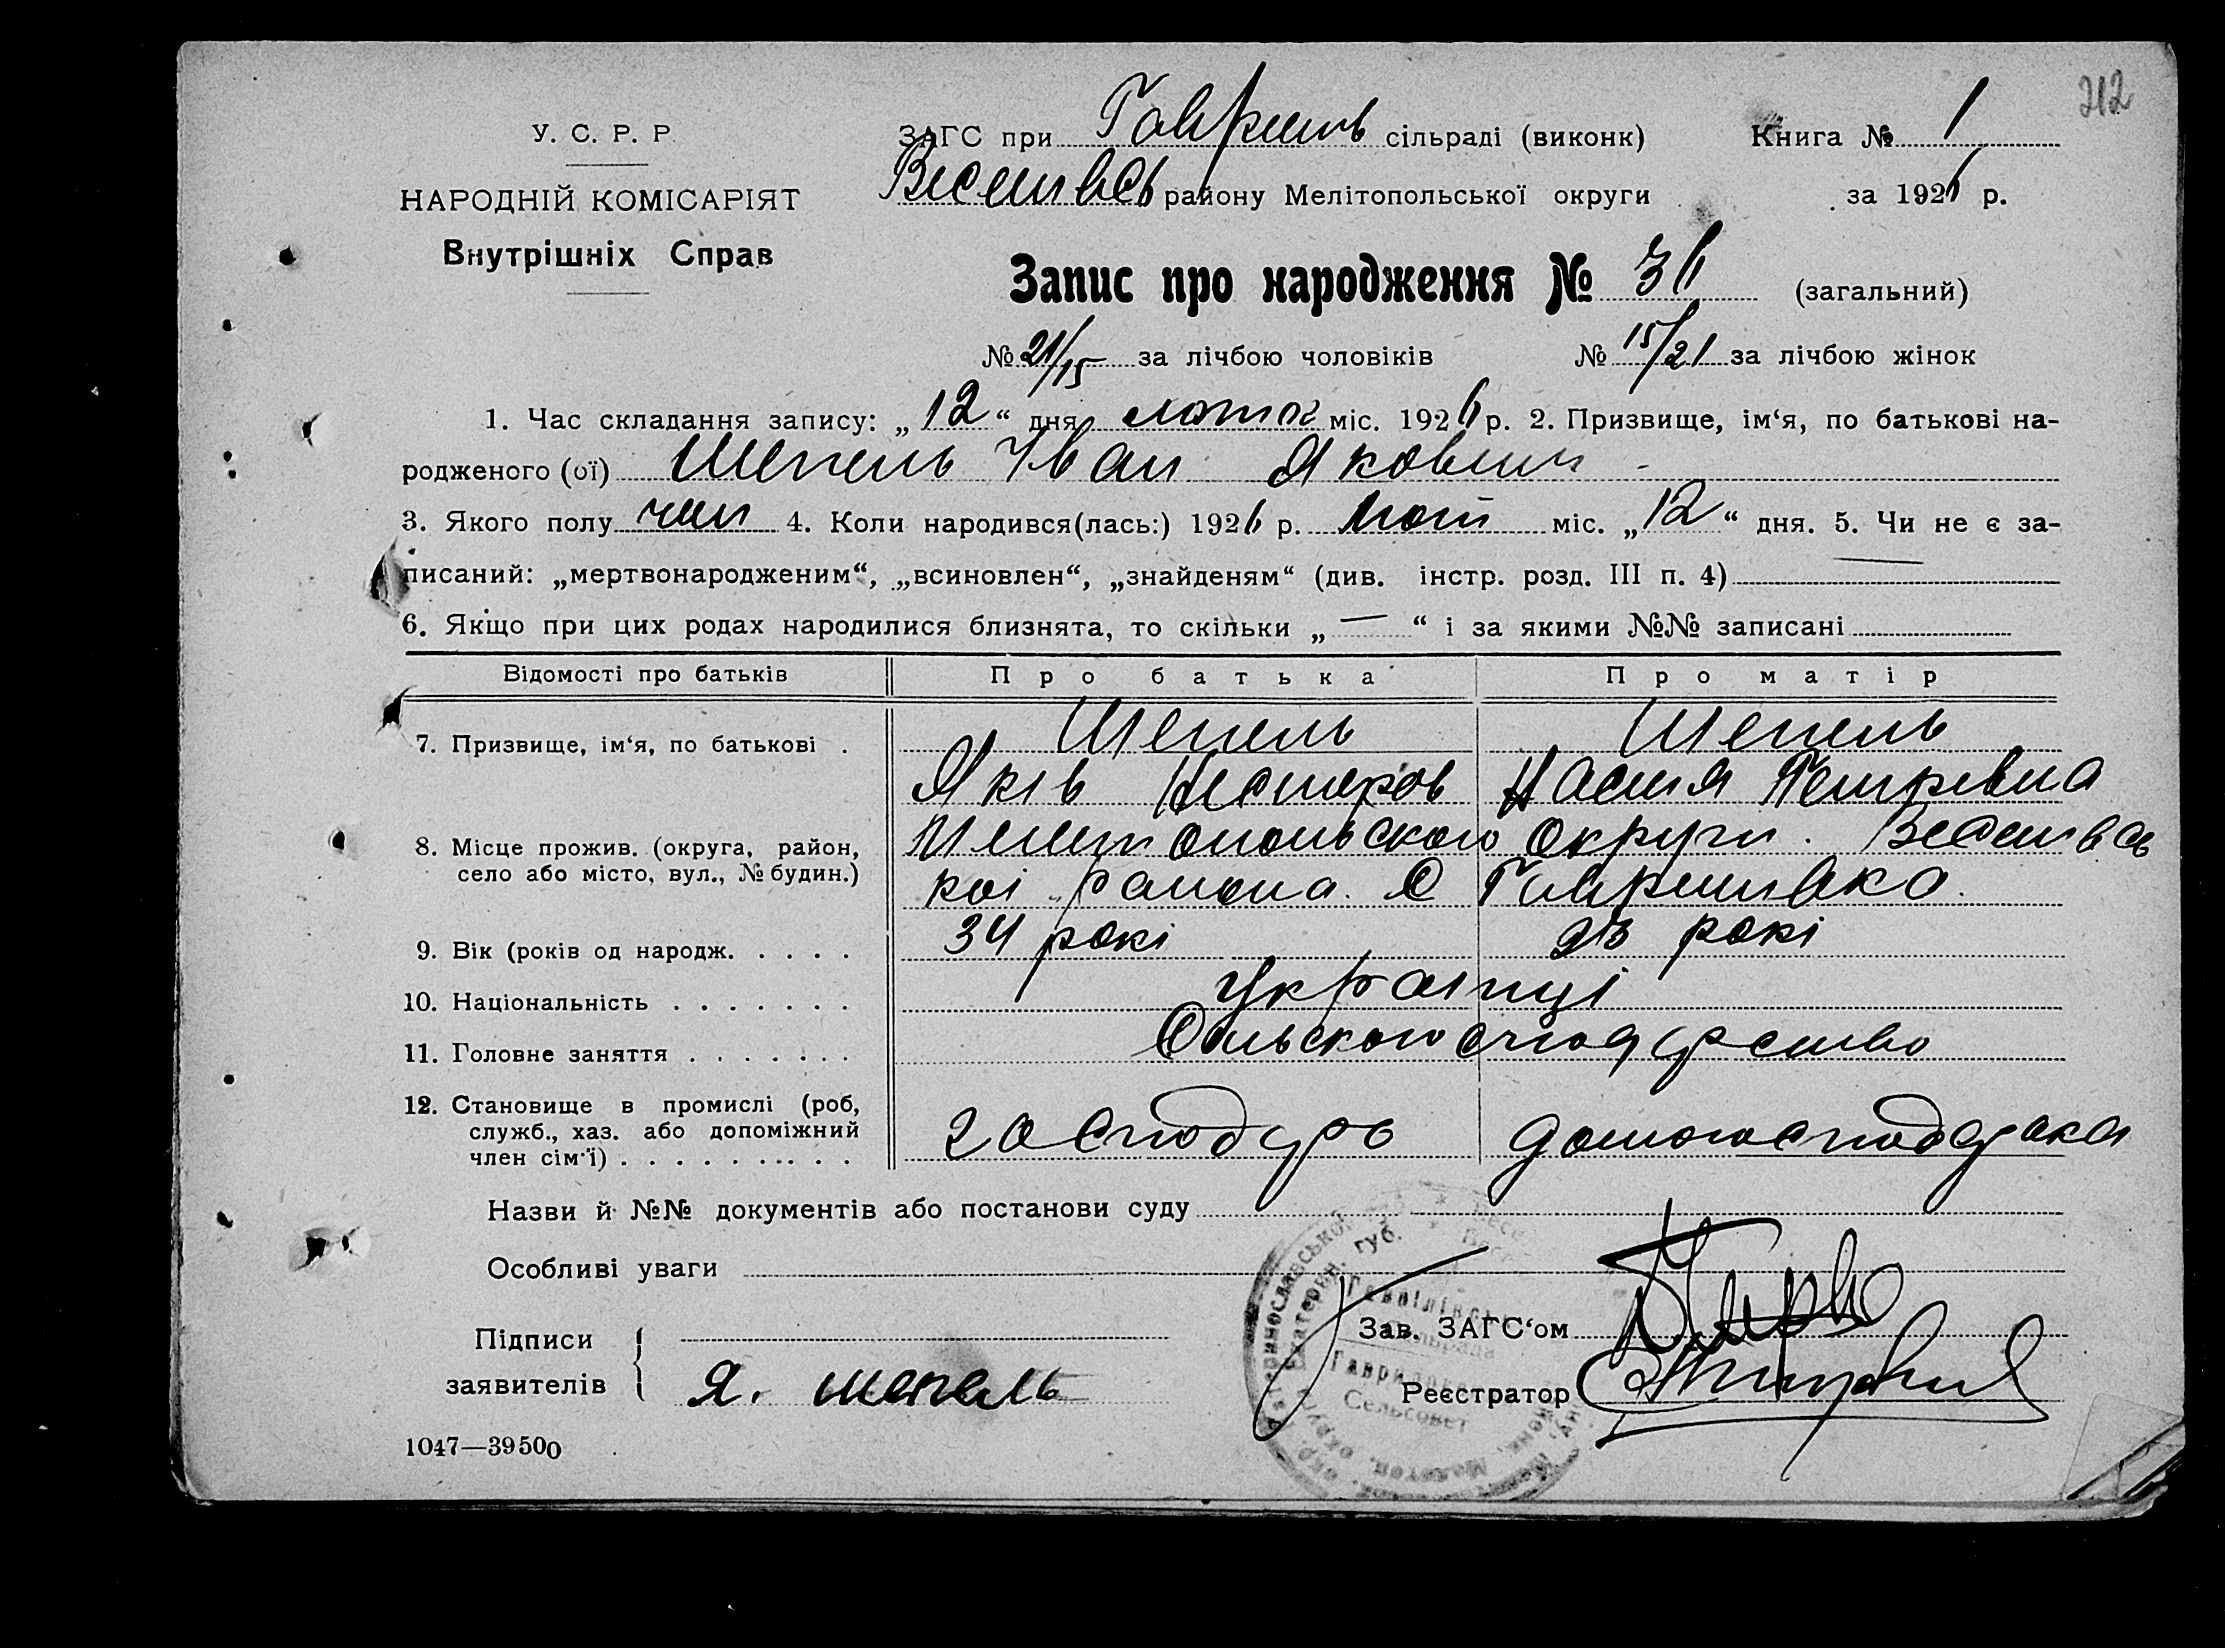 212
У. С. Р. Р.
ЗАГС при Гаврилв сільраді (виконк) Книга № 1
НАРОДНІЙ КОМІСАРІЯТ Веселівсь району Мелітопольської округи за 1926 р.
Внутрішніх Справ
Запис про народження № 36 (загальний)
№ 21/15 за лічбою чоловіків № 15/21 за лічбою жінок
1. Час складання запису: „12“ дня лютог міс. 1926 р. 2. Призвище, ім‘я, по батькові на-
родженого (ої) Шепель Іван Якович
3. Якого полу чол 4. Коли народився(лась:) 1926 р. Лют міс. „12“ дня. 5. Чи не є за-
писаний: „мертвонародженим“, „всиновлен“, „знайденям“ (див. інстр. розд. III п. 4) —
6. Якщо при цих родах народилися близнята, то скільки „—“ і за якими №№ записані
Відомості про батьків Про батька Про матір
7. Призвище, ім‘я, по батькові . Шепель Шепель
Яків Нестеров Настя Петрівна
8. Місце прожив. (округа, район, Мелитопольского Округи. Веселівсь
село або місто, вул., № будин.) кої района. С Гаврилівка.
9. Вік (років од народж. . . . . 34 рокі 23 рокі
10. Національність . . . . . . . Українці
11. Головне заняття . . . . . . . Сільского сподарство
12. Становище в промислі (роб,
служб., хаз. або допоміжний господарь домогосподарка
член сім‘ї) . . . . . . . . . .
Назви й №№ документів або постанови суду
Особливі уваги
Підписи
Зав. ЗАГС‘ом
заявителів Я. шепель
Реєстратор
Екатерин. губ.
Гаврилівськ
Сільрада
Сельсовет
1047—39500